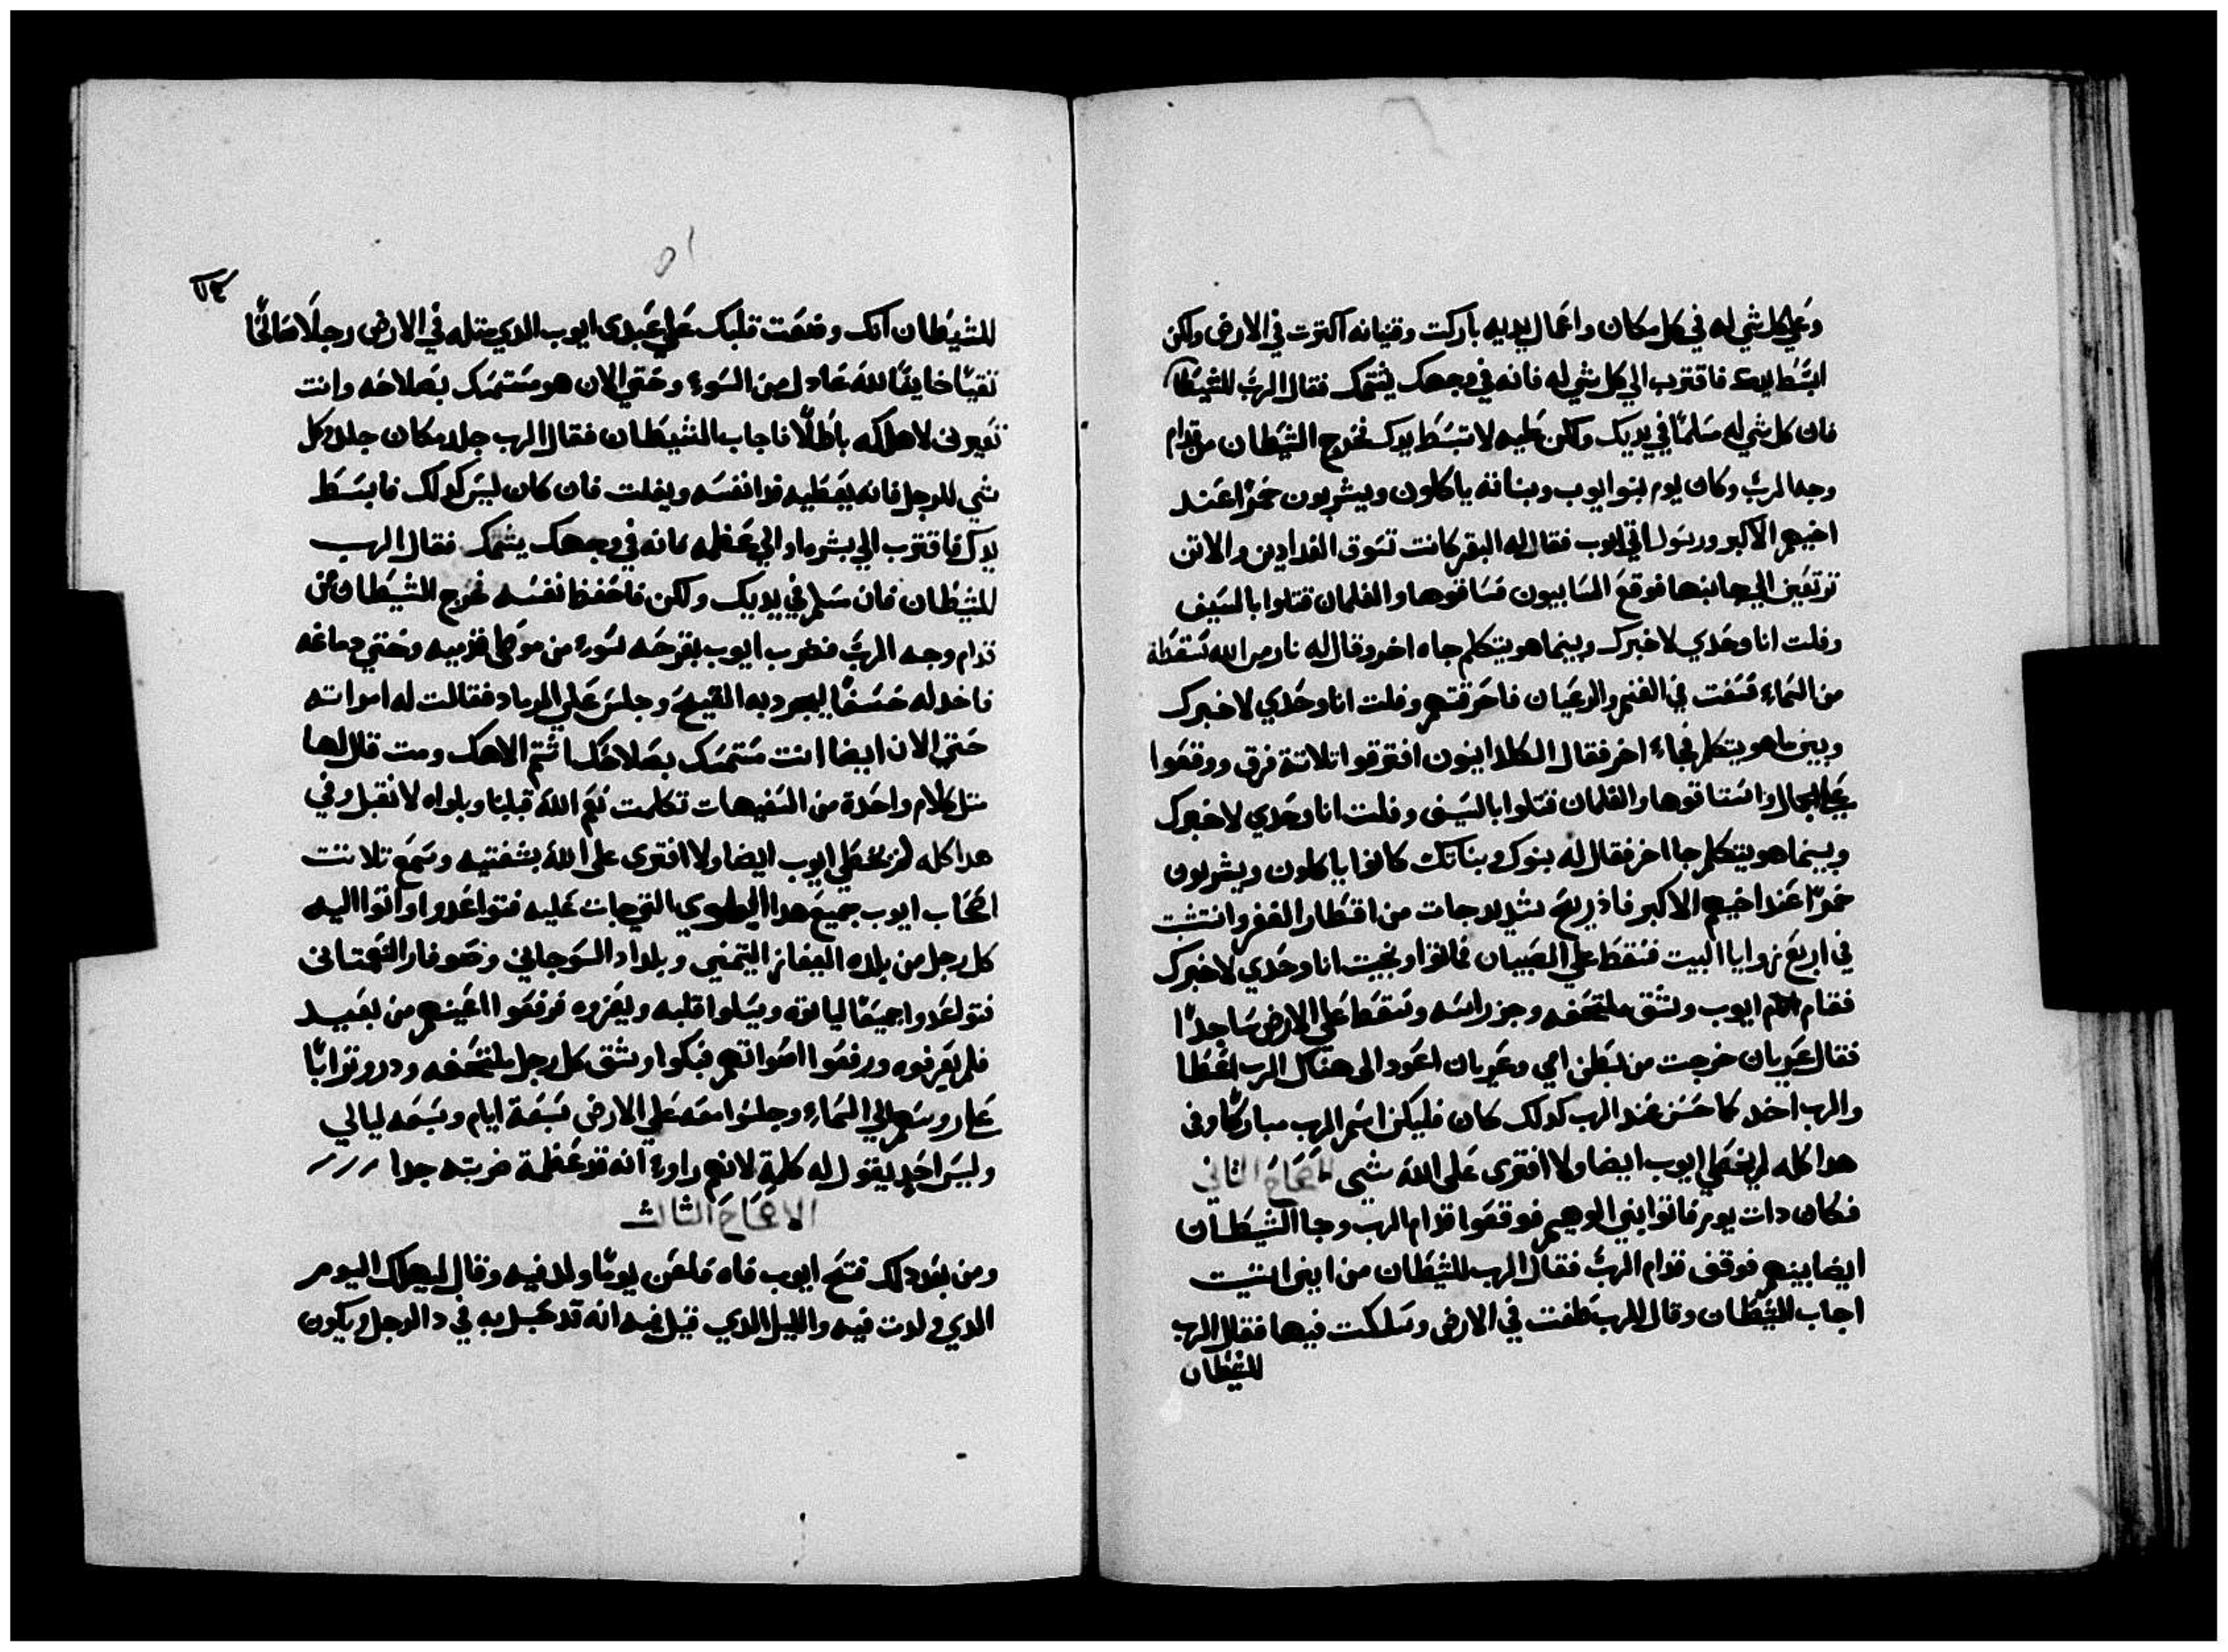 وعلي كل شي له في كل مكان واعمال يديه باركت وقنيانه اكترت في الارض ولكن
ابسط يدك فاقترب الي كل شي له فانه في وجهك يشتمك فقال الرب للشيطان
فان كل شي له مسلمًا في يديك ولكن عليه لا تبسط يدك فخرج الشيطان من قدام
وجه الرب وكان يوم بنو ايوب وبناته ياكلون ويشربون خمرًا عند
اخيهم الاكبر ورسول اتي ايوب فقال له البقر كانت تسوق الفدادين والاتن
ترتعين الي جانبها فوقع السابيون فساقوها والغلمان قتلوا بالسيف
وفلت انا وحدي لاخبرك وبينما هو يتكلم جاه اخر وقال له نار من الله سقطة
من السماء في الغنم والرعيان فاحرقتهم وفلت انا وحدي لاخبرك
وبين ما هو يتكلم فجاء اخر فقال الكلدانيون افترقوا تلاتة فرق ووقفوا
علي الجمال واستاقوها والغلمان قتلوا بالسيف وفلت انا وحدي لاخبرك
وبينما هو يتكلم جا اخر فقال له بنوك وبناتك كانوا ياكلون ويشربون
خمرًا عند اخيهم الاكبر فاذ ريح شديد جات من اقطار القفر
في اربع زوايا البيت فسقط علي الصبيان فماتوا ونجيت انا وحدي لاخبرك
فقام ايوب وشق ملتحفه وجز راسه وسقط علي الارض ساجدًا
فقال عريان خرجت من بطن امي وعريان اعود الى هناك الرب اعطا
والرب اخد كما حسن عند الرب كدلك كان فليكن اسم الرب مباركًا وفى
هدا كله لم يخطي ايوب ايضا ولا افترى على الله شيى الثاني
فكان دات يوم فاتوا بني الوهيم فوقفوا قدام الرب وجا الشيطان
ايضا بينهم فوقف قدام الرب فقال الرب للشيطان من اين اتيت
اجاب الشيطان وقال للرب طفت في الارض وسلكت فيها فقال الرب
للشيطان
٥١
للشيطان انك وضعت قلبك على عبدى ايوب الدي متله في الارض رجلًا صالحًا
نقيًا خايفًا لله عادل من السوء وحتي الان هو متمسك بصلاحه وانت
لاهلكه باطلًا فاجاب الشيطان فقال الرب جلد مكان جلد وكل
شي للرجل فانه يعطيه فدا نفسه ويفلت فان كان ليس كدلك فابسط
يدك فاقترب الي بشره او الي عظمه فانه في وجهك يشتمك فقال الرب
للشيطان فان سلم في يديك ولكن فاحفظ نفسه فخرج الشيطان من
قدام وجه الرب فضرب ايوب بقرحه سوء من موطى قدميه وحتي دماغه
فاخد له خسفًا ليجرد به القيح وجلس على الرماد فقالت له امراته
حتى الان ايضا انت متمسك بصلاحك اشتم الاهك ومت قال لها
متل كلام واحدة من السفيهات تكلمت نعم الله قبلنا وبلواه لا نقبل وفي
هدا كله لم يخطي ايوب ايضا ولا افترى على الله بشفتيه وسمع تلاتت
اصحاب ايوب جميع هدا البلوي التي جات عليه فتواعدوا واتوا اليه
كل رجل من بلده اليفاز التيمني وبلداد السوحاني وصوفار النعمتانى
فتواعدوا جميعًا لياتوه ويسلوا قلبه ويعزوه فرفعوا اعينهم من بعيد
فلم يعرفوه ورفعوا اصواتهم فبكوا وشق كل رجل ملتحفه ودروا ترابًا
على روسهم الي السماء وجلسوا معه علي الارض سبعة ايام وسبعه ليالي
وليس احد يقول له كلمة لانهم راوء انه قد عظمة ضربته جدا
الاصحاح الثالث
ومن بعد دلك فتح ايوب فاه فلعن يومًا ولد فيه وقال ليهلك اليوم
الدي ولدت فيه والليل الدي قيل فيه انه قد حبل به في دا الرجل ويكون